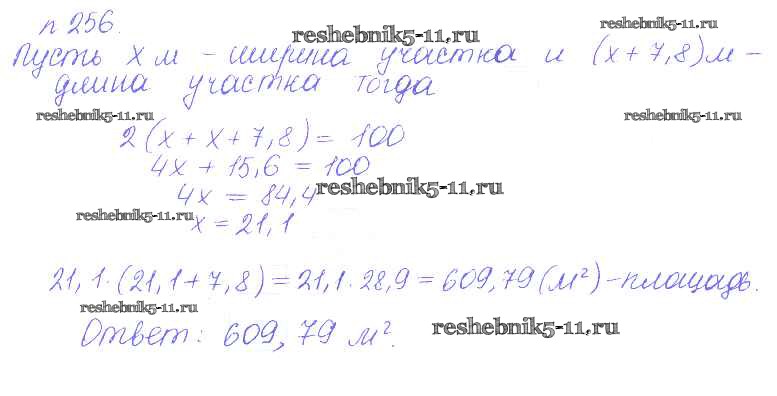 п 256.
reshebnik5-11.ru
reshebnik5-11.ru
Пусть x м - ширина участка и (x + 7,8) м -
длина участка тогда
reshebnik5-11.ru
reshebnik5-11.ru
2 (x + x + 7,8) = 100
4x + 15,6 = 100
reshebnik5-11.ru
4x = 84,4
reshebnik5-11.ru
x = 21,1
21,1 · (21,1 + 7,8) = 21,1 · 28,9 = 609,79 (м²) - площадь.
reshebnik5-11.ru
Ответ: 609,79 м².
reshebnik5-11.ru